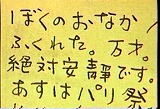 ぼくのおなか
ふくれた。万才。
絶対安静です。
あすはパリ祭